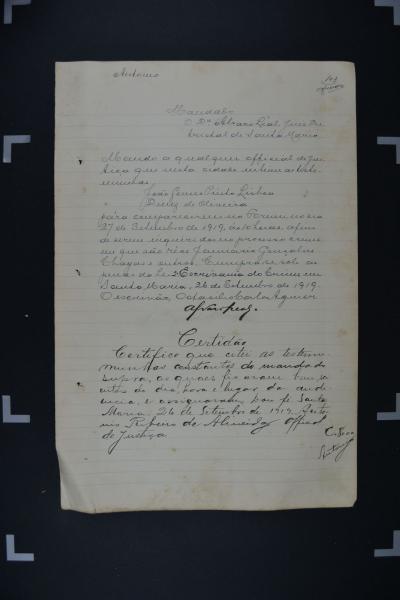 Antonio
Mandado
O Dr. Alvaro Leal, Juiz Dis
trictal de Santa Maria
Mando a qualquer official de jus
tiça que nesta cidade intime as teste
munhas
João Pinto Lisboa
Diniz de Oliveira
para comparecerem no Forum no dia
27 de Setembro de 1919, ás 10 horas, afim
de serem inqueridas no processo crime
em que são réos Januario Gonsalves
Chagas e outros. Cumpra-se sob as
penas da lei. Escrivania do Crime em
Santa Maria, 26 de Setembro de 1919.
O escrivão, Carlos
Alvaro Leal.
Certidão
Certifico que citei as testem
munhas constantes do mandado
supra, as quaes ficaram bem
do dia, hora e lugar da audi
encia, e assignaram, dou fé. Santa
Maria, 26 de Setembro de 1919. Anto
nio Ribeiro de Almeida Official
de Justiça